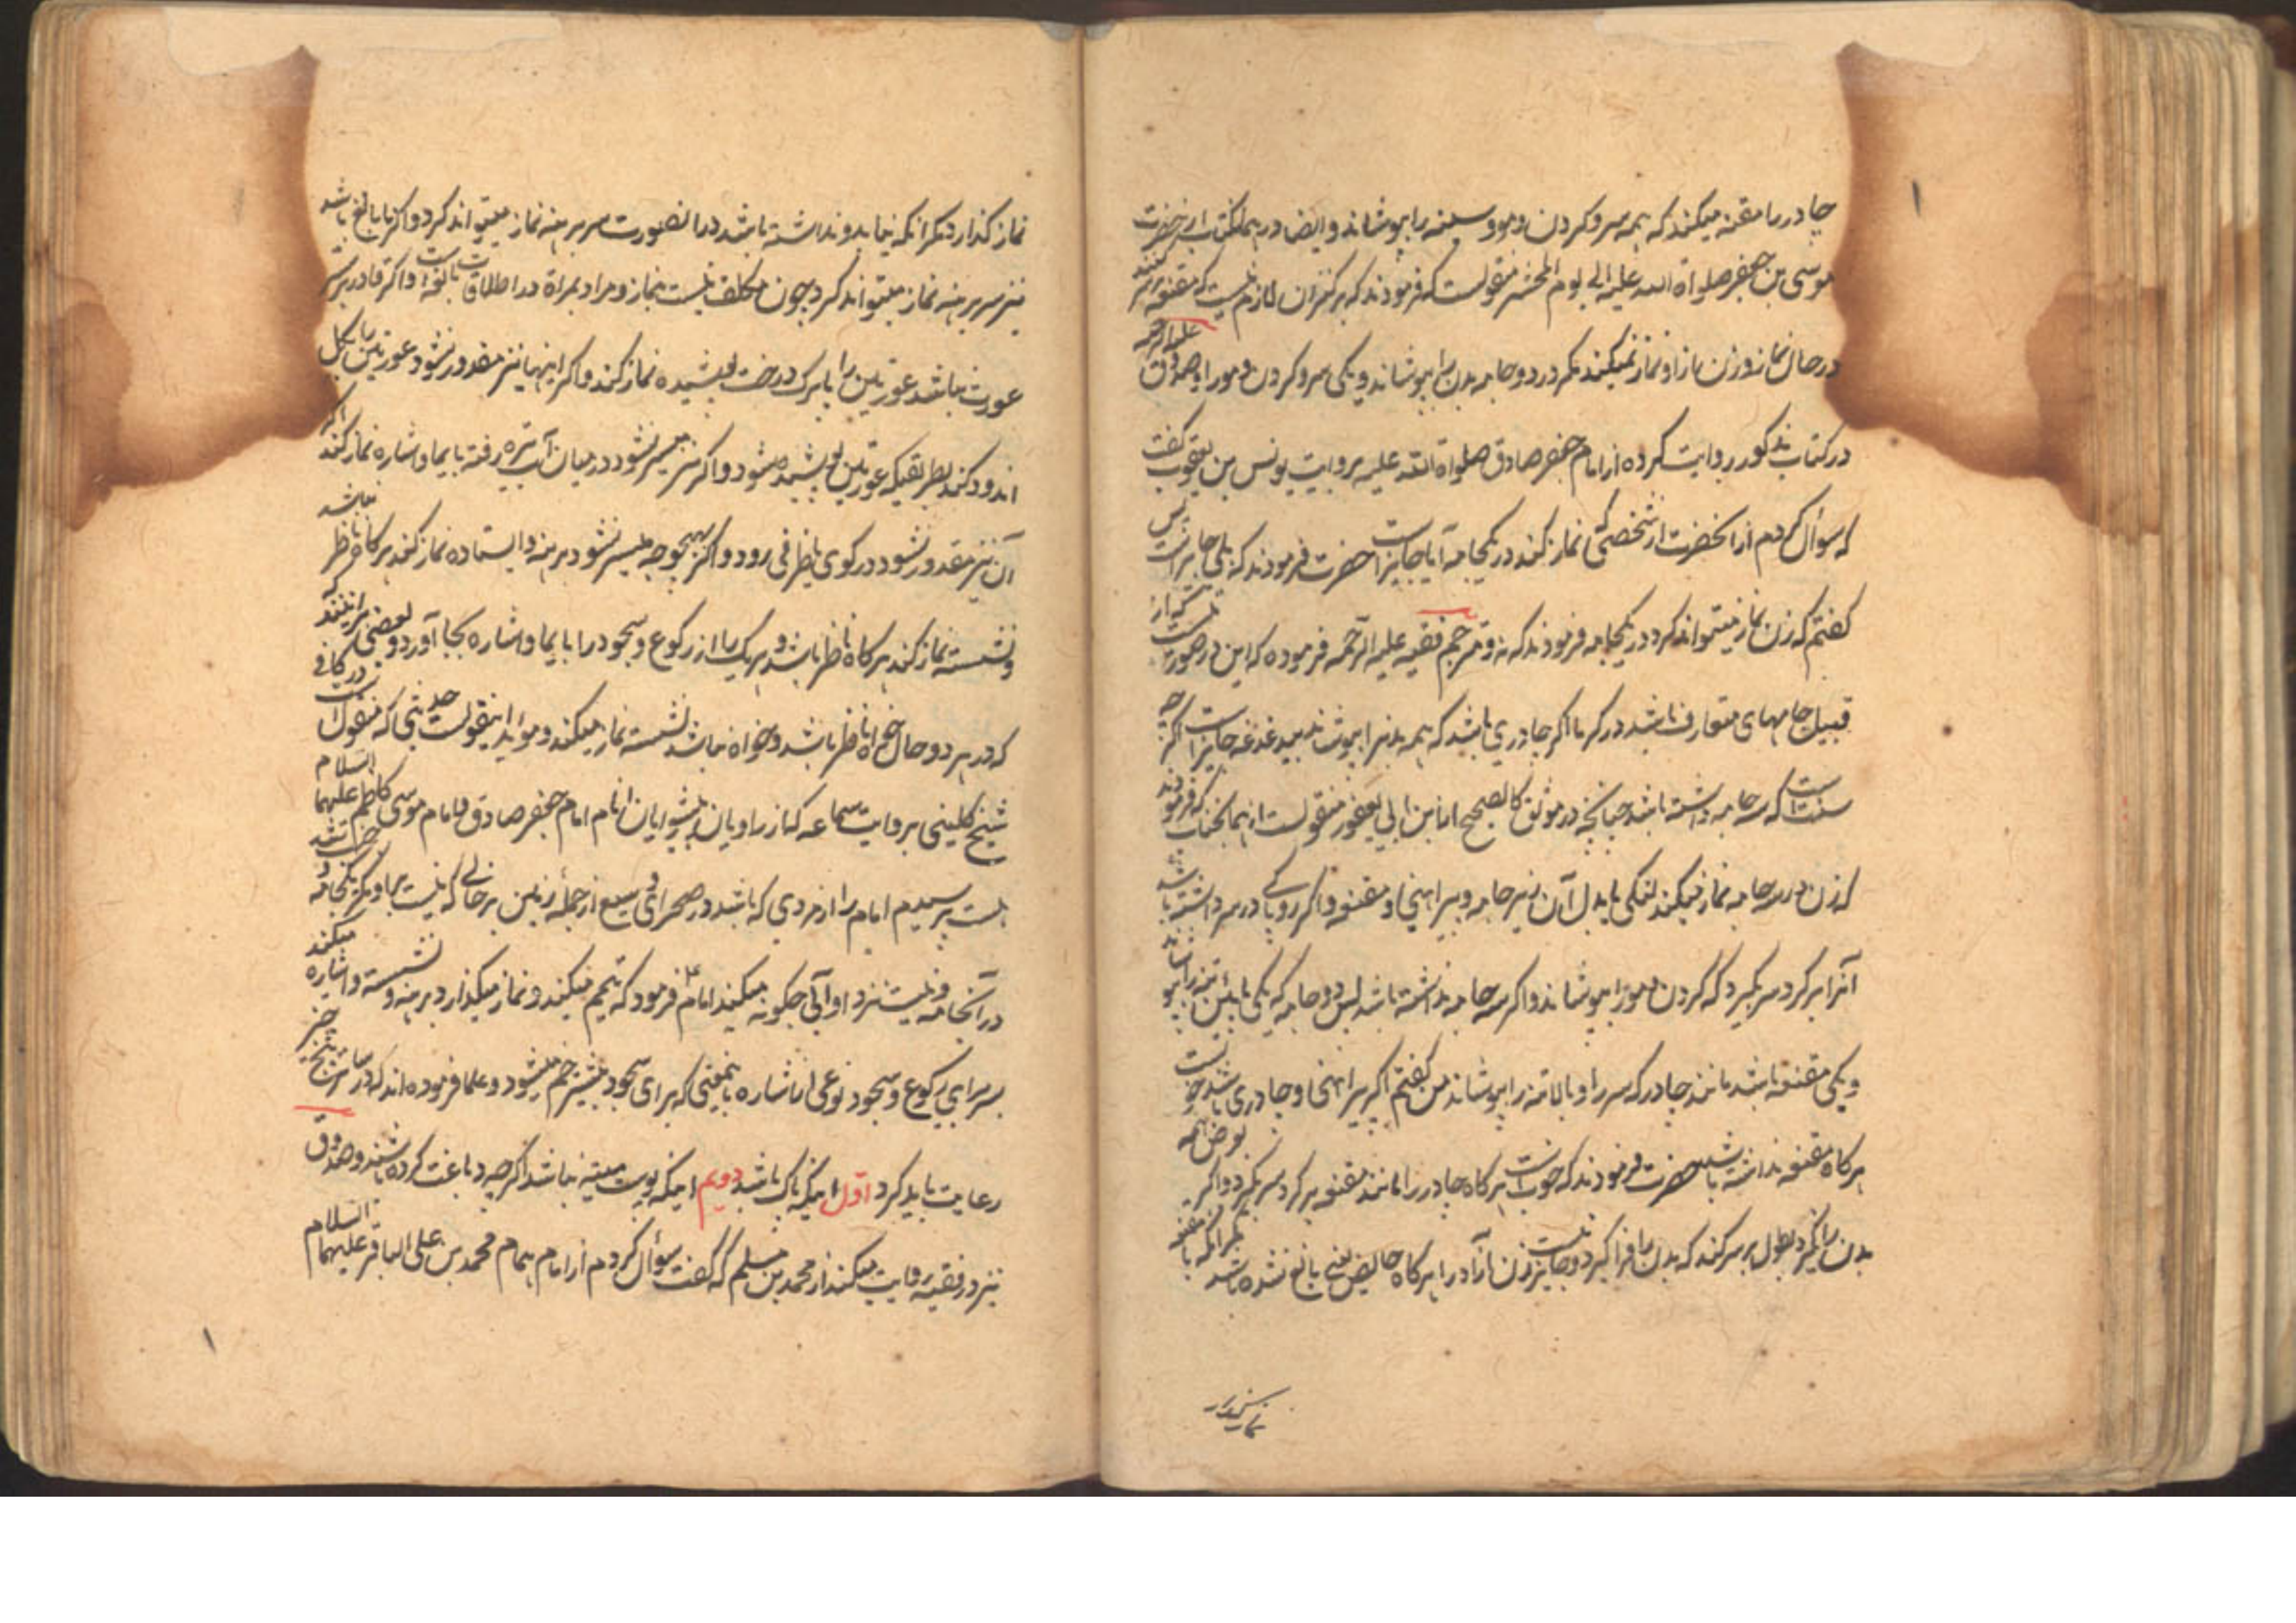 چادر را مقنعه میکند که همه سر و کردن و مو و سینه را بپوشاند و ایضا در همان کتاب از حضرت
موسی بن جعفر صلواة الله علیه الی یوم المحشر منقولست که فرمودند که بر کنیزان لازم نیست که مقنعه بر سر کنند
در حال نماز و زن نماز نمیکند مکر در دو جامه بدن را بپوشاند و یکی سر و کردن و مو را و صدوق علیه الرحمه
در کتاب مذکور روایت کرده از امام جعفر صادق صلواة الله علیه بروایت یونس بن یعقوب کفت
که سؤال کردم از آنحضرت از شخصی که نماز کند در یکجامه آیا جایز است حضرت فرمودند که بلی جایز است پس
کفتم که زن نماز میتواند کرد در یکجامه فرمودند که نه و مترجم فقیه علیه الرحمه فرموده که این در صورت نیست که از
قبیل جامهای متعارف باشد در کرما اکر چادری باشد که همه بدنرا بپوشاند بیدغدغه جایز است اکر چه
سنت است که سه جامه داشته باشد چنانچه در موثق کالصحیح از ابن ابی یعفور منقولست از همانجناب که فرمودند
که زن در سه جامه نماز میکند لنکی یا بدل آن زیر جامه و پیراهنی و مقنعه و اکر روپاکی در سر داشته باشد
آنرا بر کرد سر بکیرد که کردن و مو را بپوشاند و اکر سه جامه نداشته باشد پس دو جامه که یکی پائین تنه را بپوشاند
و یکی مقنعه باشد مانند چادر که سر را و بالا تنه را بپوشاند من کفتم اکر پیراهنی و چادری باشد خوبست
هر کاه مقنعه نداشته باشد حضرت فرمودند که خوبست هر کاه چادر را مانند مقنعه بر کرد سر بکیرد و اکر بعرض همه
بدن را نکیرد بطول بر سر کند که بدن را فرا کیرد و جایز نیست زن آزاد را هر کاه حایض یعنی بالغ شده باشد مکر آنکه با مقنعه
نماز کذارد
نماز کذارد مکر آنکه نیابد و نداشته باشد در اینصورت سر برهنه نماز میتواند کرد و اکر نابالغ باشد
نیز سر برهنه نماز میتواند کرد چون مکلف نیست بنماز و مراد بمراة در اطلاقات بالغه است و اکر قادر بر ستر
عورت نباشد عورتین را با برک درخت پوشیده نماز کند و اکر اینها نیز مقدور نشود عورتین را بکل
اندود کند بطریقیکه عورتین پوشیده شود و اکر نیز میسر نشود در میان آب تیره رفته بایما و اشاره نماز کند اکر
آن نیز مقدور نشود در کوی یا ظرفی رود و اکر بهیچوجه میسر نشود برهنه و ایستاده نماز کند هر کاه ناظر نباشد
و نشسته نماز کند هر کاه ناظر باشد و هر یک را از رکوع و سجود را بایما و اشاره بجا آورد و بعضی برآنند که
که در هر دو حال خواه ناظر باشد و خواه نباشد نشسته نماز میکند و مؤید اینقولست حدیثی که منقول است در کافی
شیخ کلینی بروایت سماعه که از راویان پیشوایان انام امام جعفر صادق و امام موسی کاظم علیهما السلام
است پرسیدم امام را از مردی که باشد در صحرای وسیع از جملهٔ زمین بر حالی که نیست بر او مکر یکجامه و جنب شد
در آنجامه و نیست نزد او آبی چکونه میکند امام ع فرمود که تیمم میکند و نماز میکذارد برهنه و نشسته و اشاره میکند
بسر برای رکوع و سجود نوعی از اشاره بایمعنی که برای سجود بیشتر خم میشود و علما فرموده اند که در ساتر پنج چیز
رعایت باید کرد اول اینکه پاک باشد دویم اینکه پوست میته نباشد اکر چه دباغت کرده باشند و صدوق
نیز در فقیه روایت میکند از محمد بن مسلم که کفت سؤال کردم از امام همام محمد بن علی الباقر علیهما السلام